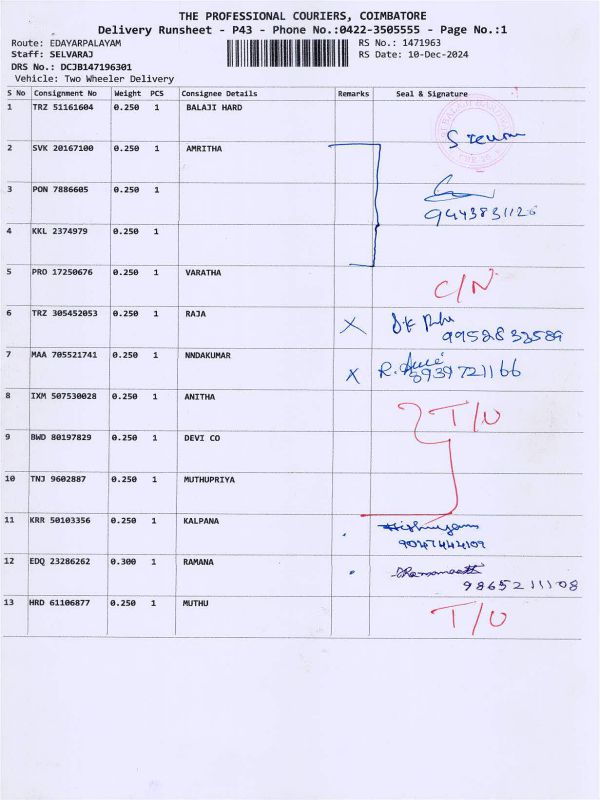 THE PROFESSIONAL COURIERS, COIMBATORE
Delivery Runsheet - P43 - Phone No.:0422-3505555 - Page No.:1
Route: EDAYARPALAYAM RS No.: 1471963
Staff: SELVARAJ RS Date: 10-Dec-2024
DRS No.: DCJB147196301
Vehicle: Two Wheeler Delivery
S No Consignment No Weight PCS Consignee Details Remarks Seal & Signature
1 TRZ 51161604 0.250 1 BALAJI HARD
2 SVK 20167100 0.250 1 AMRITHA
3 PON 7886605 0.250 1
9443831126
4 KKL 2374979 0.250 1
5 PRO 17250676 0.250 1 VARATHA C/N
6 TRZ 305452053 0.250 1 RAJA X
9952832589
7 MAA 705521741 0.250 1 NNDAKUMAR X R.
8939721166
8 IXM 507530028 0.250 1 ANITHA T/U
9 BWD 80197829 0.250 1 DEVI CO
10 TNJ 9602887 0.250 1 MUTHUPRIYA
11 KRR 50103356 0.250 1 KALPANA
9047444109
12 EDQ 23286262 0.300 1 RAMANA
9865211108
13 HRD 61106877 0.250 1 MUTHU T/U